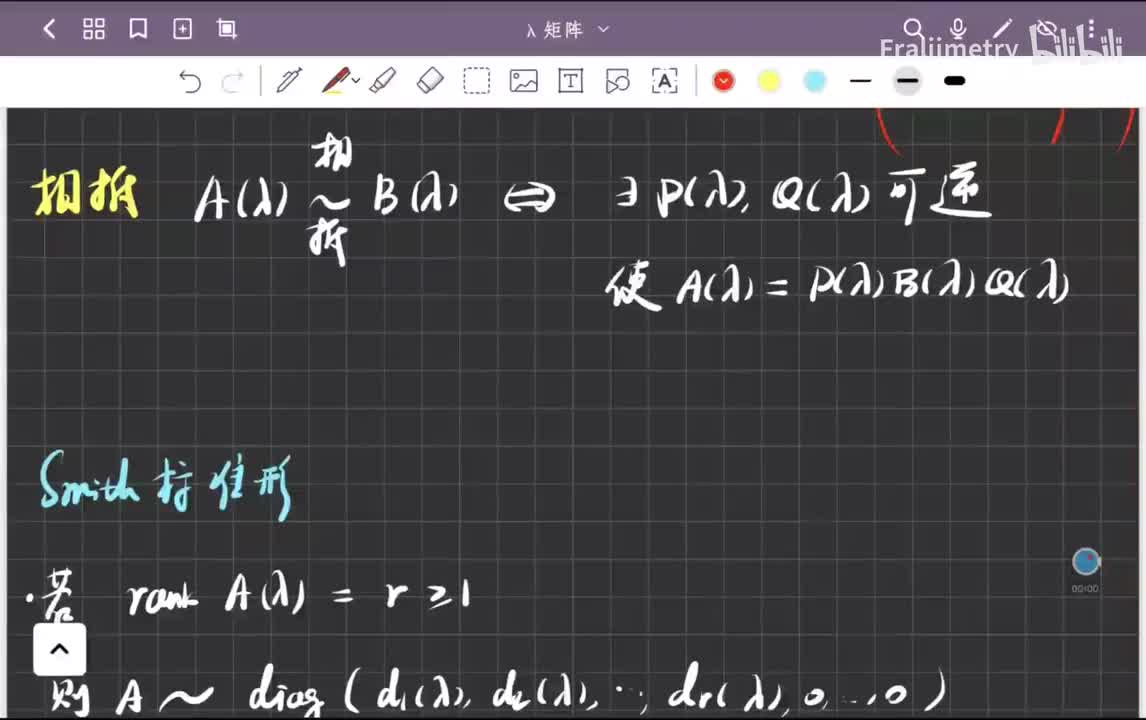 λ 矩阵
Fraliimetry bilibili
相抵 A(λ) 相抵 ~ B(λ) ⇔ ∃ P(λ), Q(λ) 可逆
使 A(λ) = P(λ) B(λ) Q(λ)
Smith 标准形
· 若 rank A(λ) = r ≥ 1
00:00
则 A ~ diag ( d₁(λ), d₂(λ), ..., dr(λ), 0, ..., 0 )